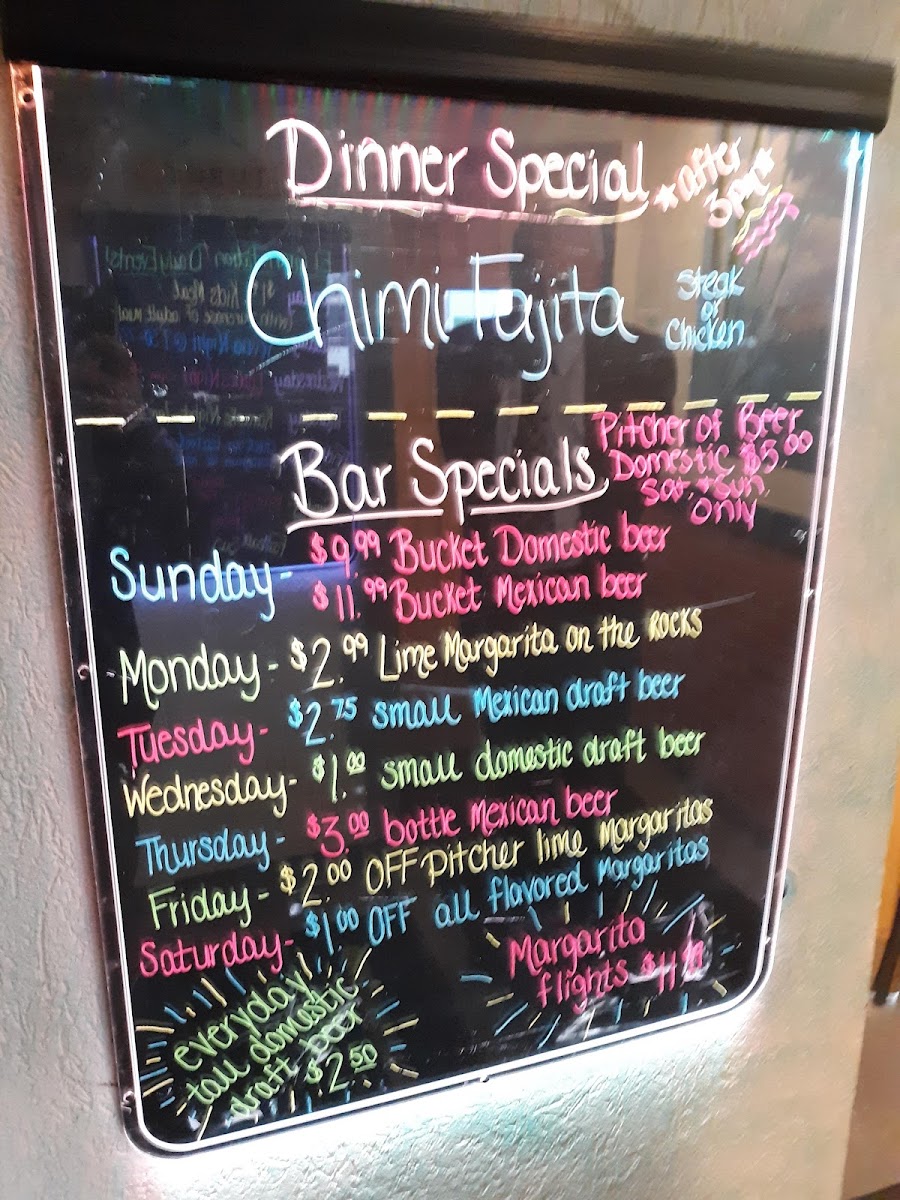 Dinner Special
*after
3pm*
Chimi Fajita
Steak
or
Chicken
Pitcher of Beer
Domestic $5.00
Sat. + Sun.
Only
Bar Specials
Sunday - $9.99 Bucket Domestic beer
$11.99 Bucket Mexican beer
Monday - $2.99 Lime Margarita on the Rocks
Tuesday - $2.75 small Mexican draft beer
Wednesday - $1.00 small domestic draft beer
Thursday - $3.00 bottle Mexican beer
Friday - $2.00 OFF Pitcher lime Margaritas
Saturday - $1.00 OFF all flavored Margaritas
Margarita
flights $11.99
everyday
tall domestic
draft beer
$2.50